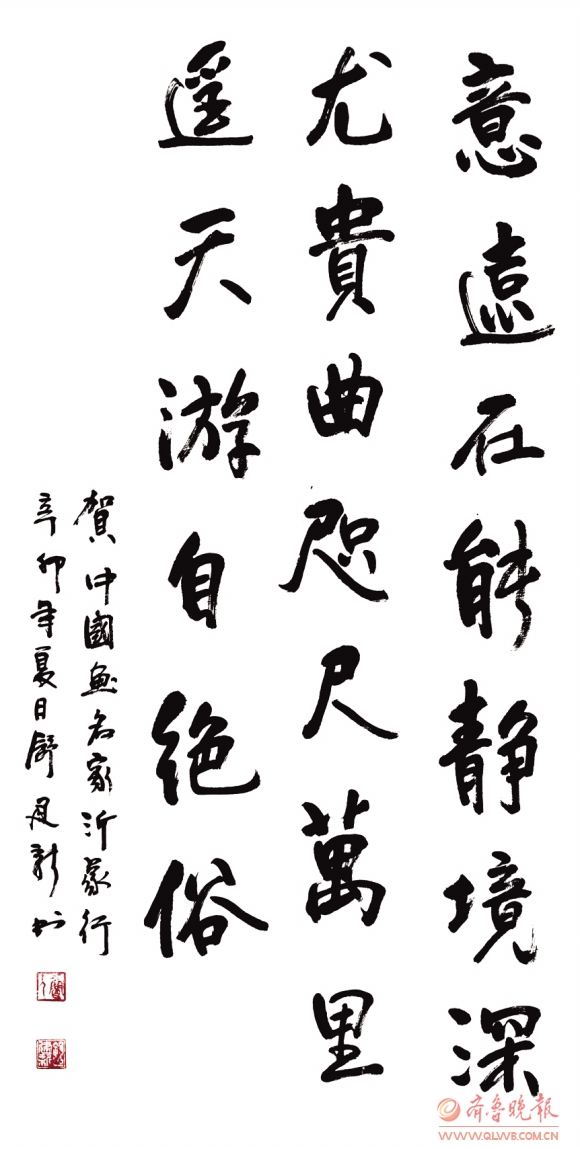 意遠在能静境深
尤貴曲咫尺萬里
遥天游自绝俗
賀中國畫名家沂蒙行
辛卯年夏日舒建新书
齐鲁晚報
WWW.QLWB.COM.CN